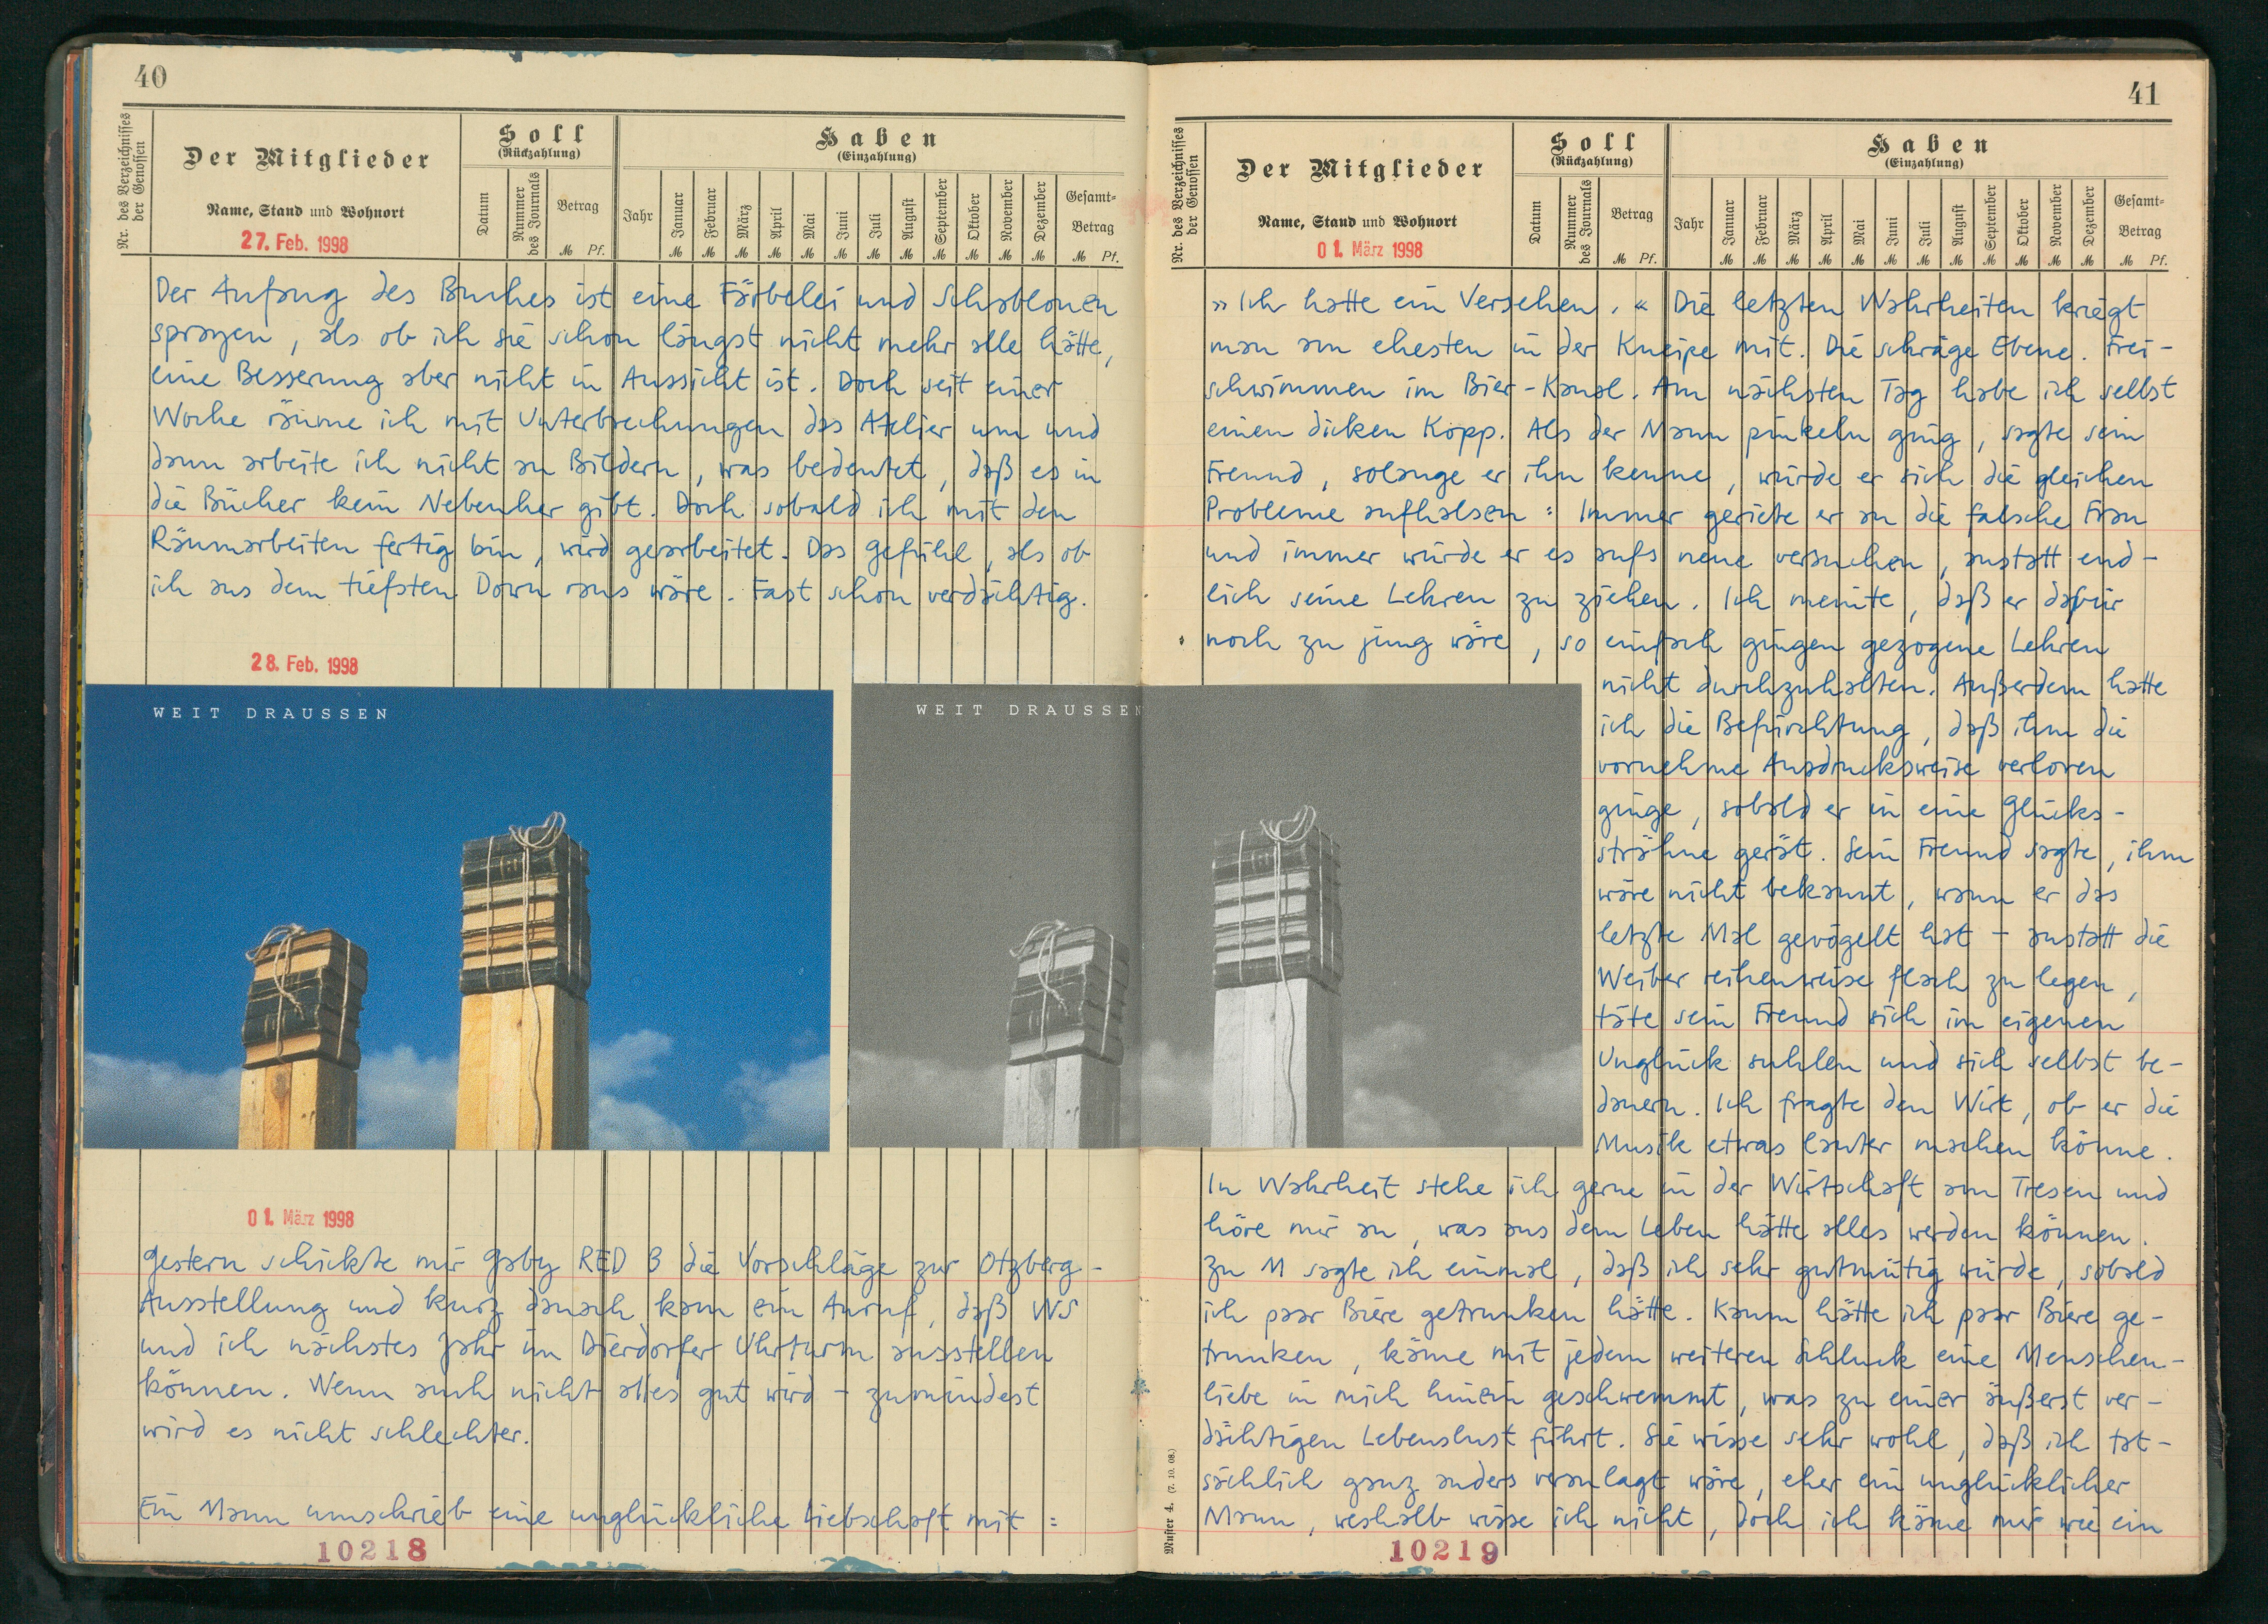 40
Nr. des Verzeichnisses
der Genossen
Der Mitglieder
Name, Stand und Wohnort
27. Feb. 1998
Soll
(Rückzahlung)
Datum
Nummer
des Journals
Betrag
M Pf.
Haben
(Einzahlung)
Jahr
Januar
Februar
März
April
Mai
Juni
Juli
August
September
Oktober
November
Dezember
Gesamt=
Betrag
M M M M M M M M M M M M M Pf.
Der Anfang des Buches ist eine Färbelei und Schablonen
sprayen, als ob ich sie schon längst nicht mehr alle hätte,
eine Besserung aber nicht in Aussicht ist. Doch seit einer
Woche räume ich mit Unterbrechungen das Atelier um und
dann arbeite ich nicht an Bildern, was bedeutet, daß es in
die Bücher kein Nebenher gibt. Doch sobald ich mit den
Räumarbeiten fertig bin, wird gearbeitet. Das Gefühl, als ob
ich aus dem tiefsten Down raus wäre. Fast schon verdächtig.
28. Feb. 1998
WEIT DRAUSSEN
WEIT DRAUSSEN
01. März 1998
Gestern schickte mir Gaby RED 3 die Vorschläge zur Otzberg-
Ausstellung und kurz danach kam ein Anruf, daß WS
und ich nächstes Jahr im Dierdorfer Uhrturm ausstellen
können. Wenn auch nicht alles gut wird – zumindest
wird es nicht schlechter.
Ein Mann umschrieb eine unglückliche Liebschaft mit :
10218
41
Nr. des Verzeichnisses
der Genossen
Der Mitglieder
Name, Stand und Wohnort
01. März 1998
Soll
(Rückzahlung)
Datum
Nummer
des Journals
Betrag
M Pf.
Haben
(Einzahlung)
Jahr
Januar
Februar
März
April
Mai
Juni
Juli
August
September
Oktober
November
Dezember
Gesamt=
Betrag
M M M M M M M M M M M M M Pf.
»Ich hatte ein Versehen.« Die letzten Wahrheiten kriegt
man am ehesten in der Kneipe mit. Die schräge Ebene. Frei-
schwimmen im Bier-Kanal. Am nächsten Tag habe ich selbst
einen dicken Kopp. Als der Mann pinkeln ging, sagte sein
Freund, solange er ihn kenne, würde er sich die gleichen
Probleme aufhalsen : Immer geriete er an die falsche Frau
und immer würde er es aufs neue versuchen, anstatt end-
lich seine Lehren zu ziehen. Ich meinte, daß er dafür
noch zu jung wäre, so einfach gingen gezogene Lehren
nicht durchzuhalten. Außerdem hatte
ich die Befürchtung, daß ihm die
vornehme Ausdrucksweise verloren
ginge, sobald er in eine Glücks-
strähne gerät. Sein Freund sagte, ihm
wäre nicht bekannt, wann er das
letzte Mal gevögelt hat – anstatt die
Weiber reihenweise flach zu legen,
täte sein Freund sich im eigenen
Unglück suhlen und sich selbst be-
dauern. Ich fragte den Wirt, ob er die
Musik etwas lauter machen könne.
In Wahrheit stehe ich gerne in der Wirtschaft am Tresen und
höre mir an, was aus dem Leben hätte alles werden können.
Zu M sagte ich einmal, daß ich sehr gutmütig würde, sobald
ich paar Biere getrunken hätte. Kaum hätte ich paar Biere ge-
trunken, käme mit jedem weiteren Schluck eine Menschen-
liebe in mich hinein geschwemmt, was zu einer äußerst ver-
dächtigen Lebenslust führt. Sie wisse sehr wohl, daß ich tat-
sächlich ganz anders veranlagt wäre, eher ein unglücklicher
Mann, weshalb wisse ich nicht, doch ich käme mir wie ein
Muster 4. (7. 10. 08.)
10219